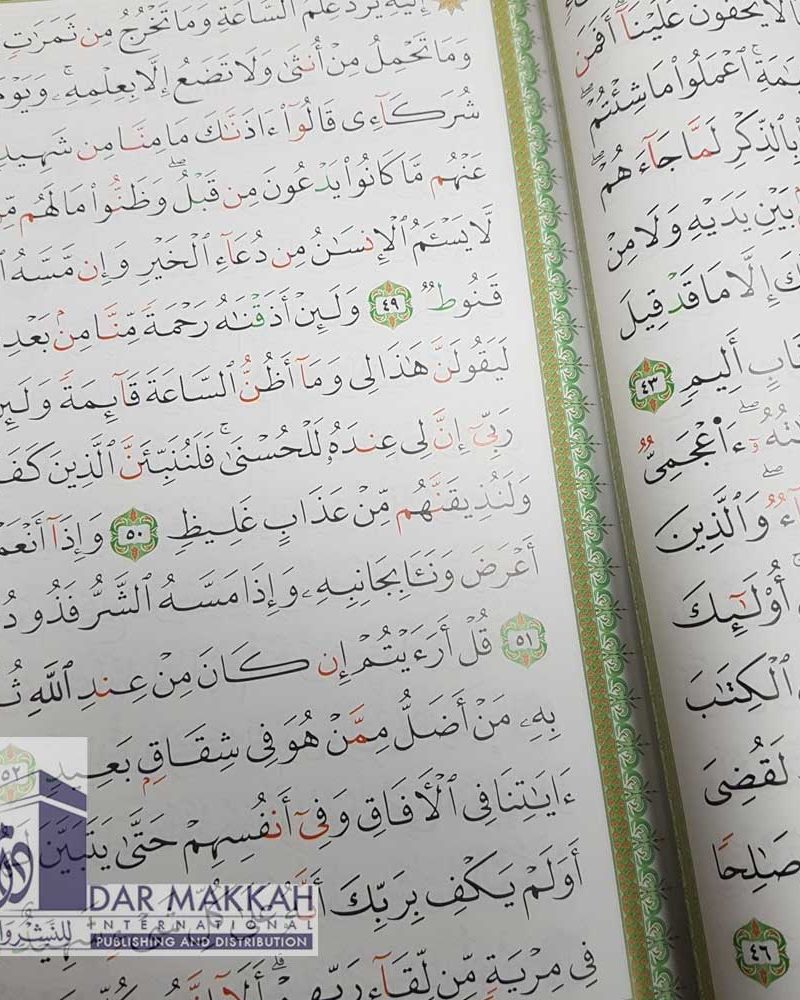 لَا يَخْفَوْنَ عَلَيْنَآ أَفَمَن
ٱعْمَلُوا۟ مَا شِئْتُمْ
بِٱلذِّكْرِ لَمَّا جَآءَهُمْ
بَيْنِ يَدَيْهِ وَلَا مِنْ
إِلَّا مَا قَدْ قِيلَ
أَلِيمٍ ٤٣
ءَا۬عْجَمِىٌّ
وَٱلَّذِينَ
أُو۟لَٰٓئِكَ
ٱلْكِتَٰبَ
لَقُضِىَ
صَٰلِحًا
٤٦
إِلَيْهِ يُرَدُّ عِلْمُ ٱلسَّاعَةِ وَمَا تَخْرُجُ مِن ثَمَرَٰتٍ
وَمَا تَحْمِلُ مِنْ أُنثَىٰ وَلَا تَضَعُ إِلَّا بِعِلْمِهِۦ ۚ وَيَوْمَ
شُرَكَآءِى قَالُوٓا۟ ءَاذَنَّٰكَ مَا مِنَّا مِن شَهِيدٍ
عَنْهُم مَّا كَانُوا۟ يَدْعُونَ مِن قَبْلُ ۖ وَظَنُّوا۟ مَا لَهُم
لَّا يَسْـَٔمُ ٱلْإِنسَٰنُ مِن دُعَآءِ ٱلْخَيْرِ وَإِن مَّسَّهُ
قَنُوطٌ ٤٩ وَلَئِنْ أَذَقْنَٰهُ رَحْمَةً مِّنَّا مِنۢ بَعْدِ
لَيَقُولَنَّ هَٰذَا لِى وَمَآ أَظُنُّ ٱلسَّاعَةَ قَآئِمَةً وَلَئِن
رَبِّىٓ إِنَّ لِى عِندَهُۥ لَلْحُسْنَىٰ ۚ فَلَنُنَبِّئَنَّ ٱلَّذِينَ
وَلَنُذِيقَنَّهُم مِّنْ عَذَابٍ غَلِيظٍ ٥٠ وَإِذَآ
أَعْرَضَ وَنَـَٔا بِجَانِبِهِۦ وَإِذَا مَسَّهُ ٱلشَّرُّ فَذُو
٥١ قُلْ أَرَءَيْتُمْ إِن كَانَ مِنْ عِندِ ٱللَّهِ
بِهِۦ مَنْ أَضَلُّ مِمَّنْ هُوَ فِى شِقَاقٍۭ بَعِيدٍ ٥٢
ءَايَٰتِنَا فِى ٱلْـَٔافَاقِ وَفِىٓ أَنفُسِهِمْ حَتَّىٰ يَتَبَيَّنَ
أَوَلَمْ يَكْفِ بِرَبِّكَ أَنَّهُۥ عَلَىٰ كُلِّ شَىْءٍ شَهِيدٌ
فِى مِرْيَةٍ مِّن لِّقَآءِ رَبِّهِمْ ۗ أَلَآ إِنَّهُۥ
DAR MAKKAH
INTERNATIONAL
PUBLISHING AND DISTRIBUTION